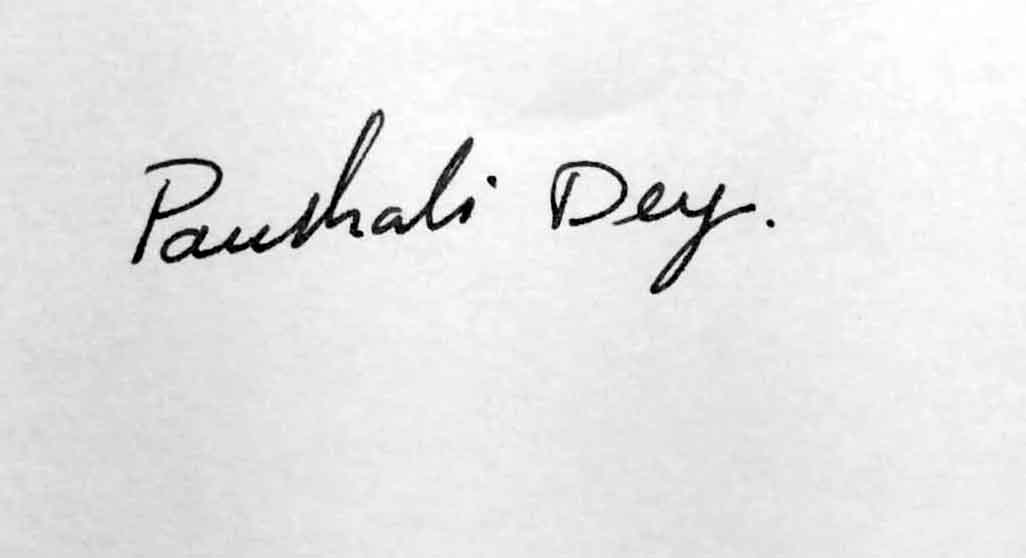 Paushali Dey.